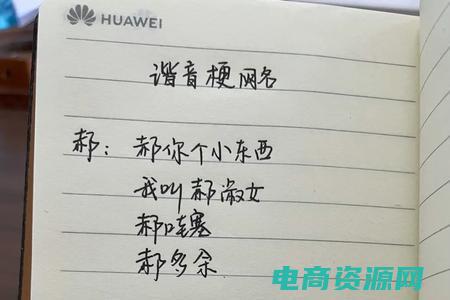 HUAWEI
谐音梗网名
郝：郝你个小东西
我叫郝淑女
郝哇塞
郝多余
电商资源网